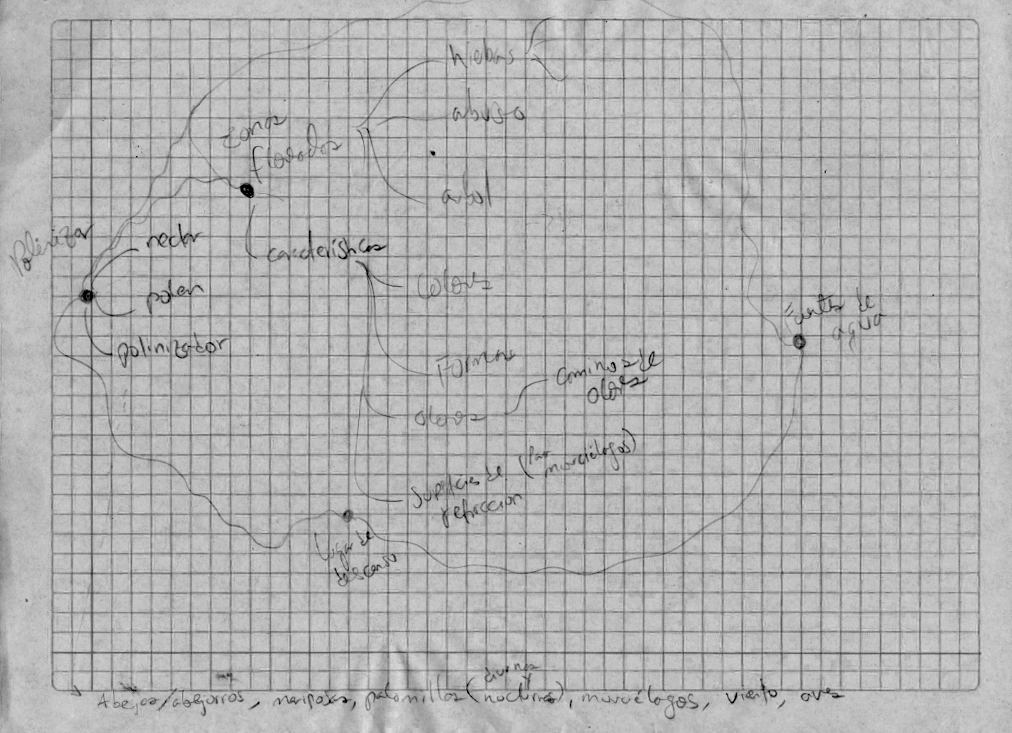 hiebas
abusto
zonas
floradas
arbol
Polinizar
nectar
caracteristicas
polen
colores
polinizador
Fuentes de
agua
Formas
caminos de
olores
olores
Supficies de (Par
murciélagos)
refraccion
lugar de
descanso
diurnas
y
Abejas/abejorros, mariposas, palomillas (nocturnas), murciélagos, viento, aves